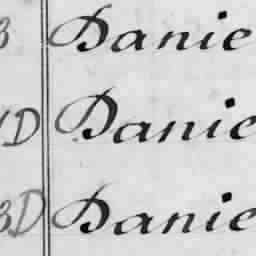 3 Danie
1D Danie
3D Danie